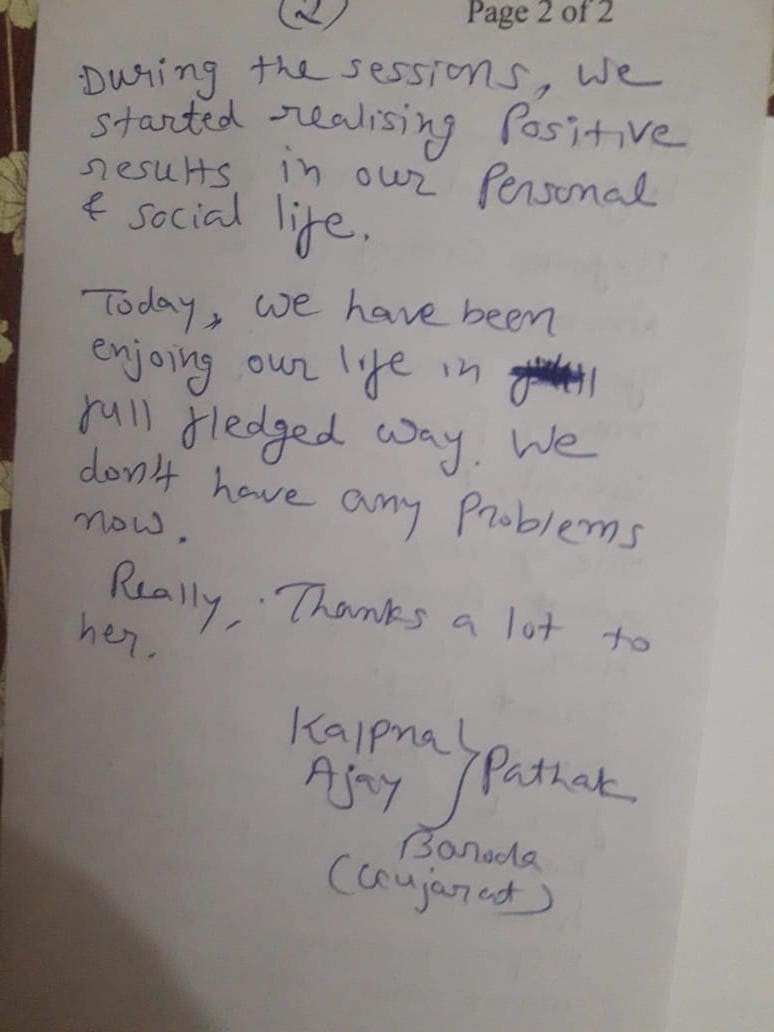 (2)
Page 2 of 2
During the sessions, we
started realising Positive
results in our Personal
& social life.
Today, we have been
enjoing our life in
full fledged way. We
don't have any Problems
now.
Really, Thanks a lot to
her.
Kalpna
Ajay } Pathak
Baroda
(Gujarat)